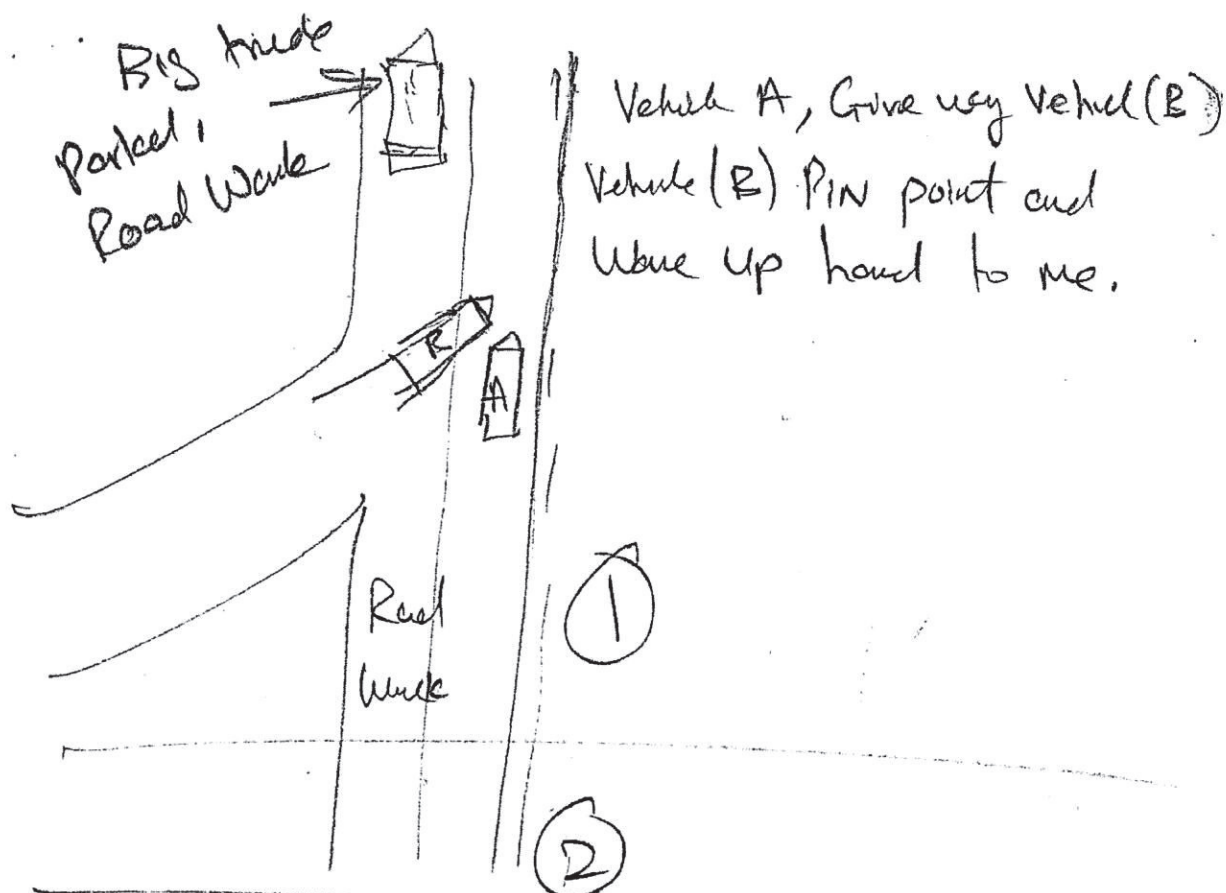 Big truck
Parked,
Road Work
Vehicle A, Give way Vehicle (B)
Vehicle (B) PIN point and
Wave up hand to me.
B
A
1
Road
Work
2